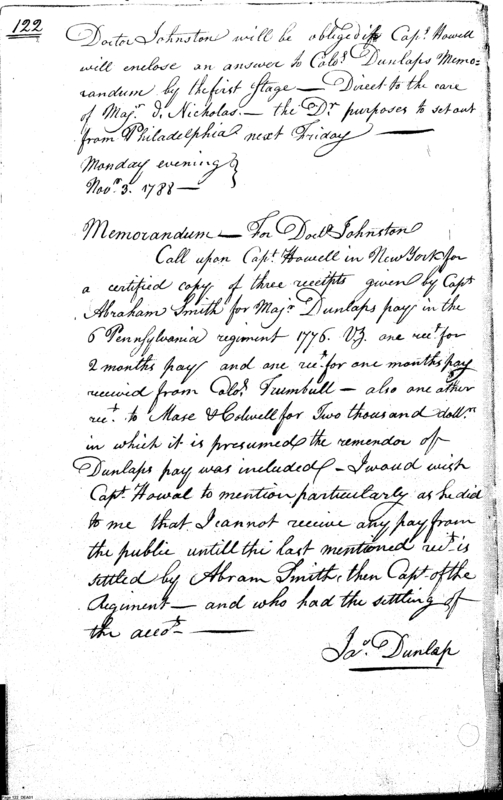 122
Doctor Johnston will be obliged if Capt. Howell
will enclose an answer to Colo. Dunlaps Memo-
randum by the first Stage — Direct to the care
of Majr. J. Nicholas. — the Dr. purposes to set out
from Philadelphia next Friday —
Monday evening }
Novr. 3. 1788 —
Memorandum — For Doctr. Johnston
Call upon Capt. Howell in New York for
a certified copy of three receipts given by Capt.
Abraham Smith for Majr. Dunlaps pay in the
6 Pennsylvania regiment 1776. Vz. one rect. for
2 months pay and one rect. for one months pay
received from Colo. Trumbull — also one other
rect. to Mase & Colwell for Two thousand dollrs.
in which it is presumed the remendor of
Dunlaps pay was included — I woud wish
Capt. Howal to mention particularly as he did
to me that I cannot receive any pay from
the public untill the last mentioned rect. is
settled by Abram Smith, then Capt. of the
Regiment — and who had the settling of
the accots. —
Jao. Dunlap